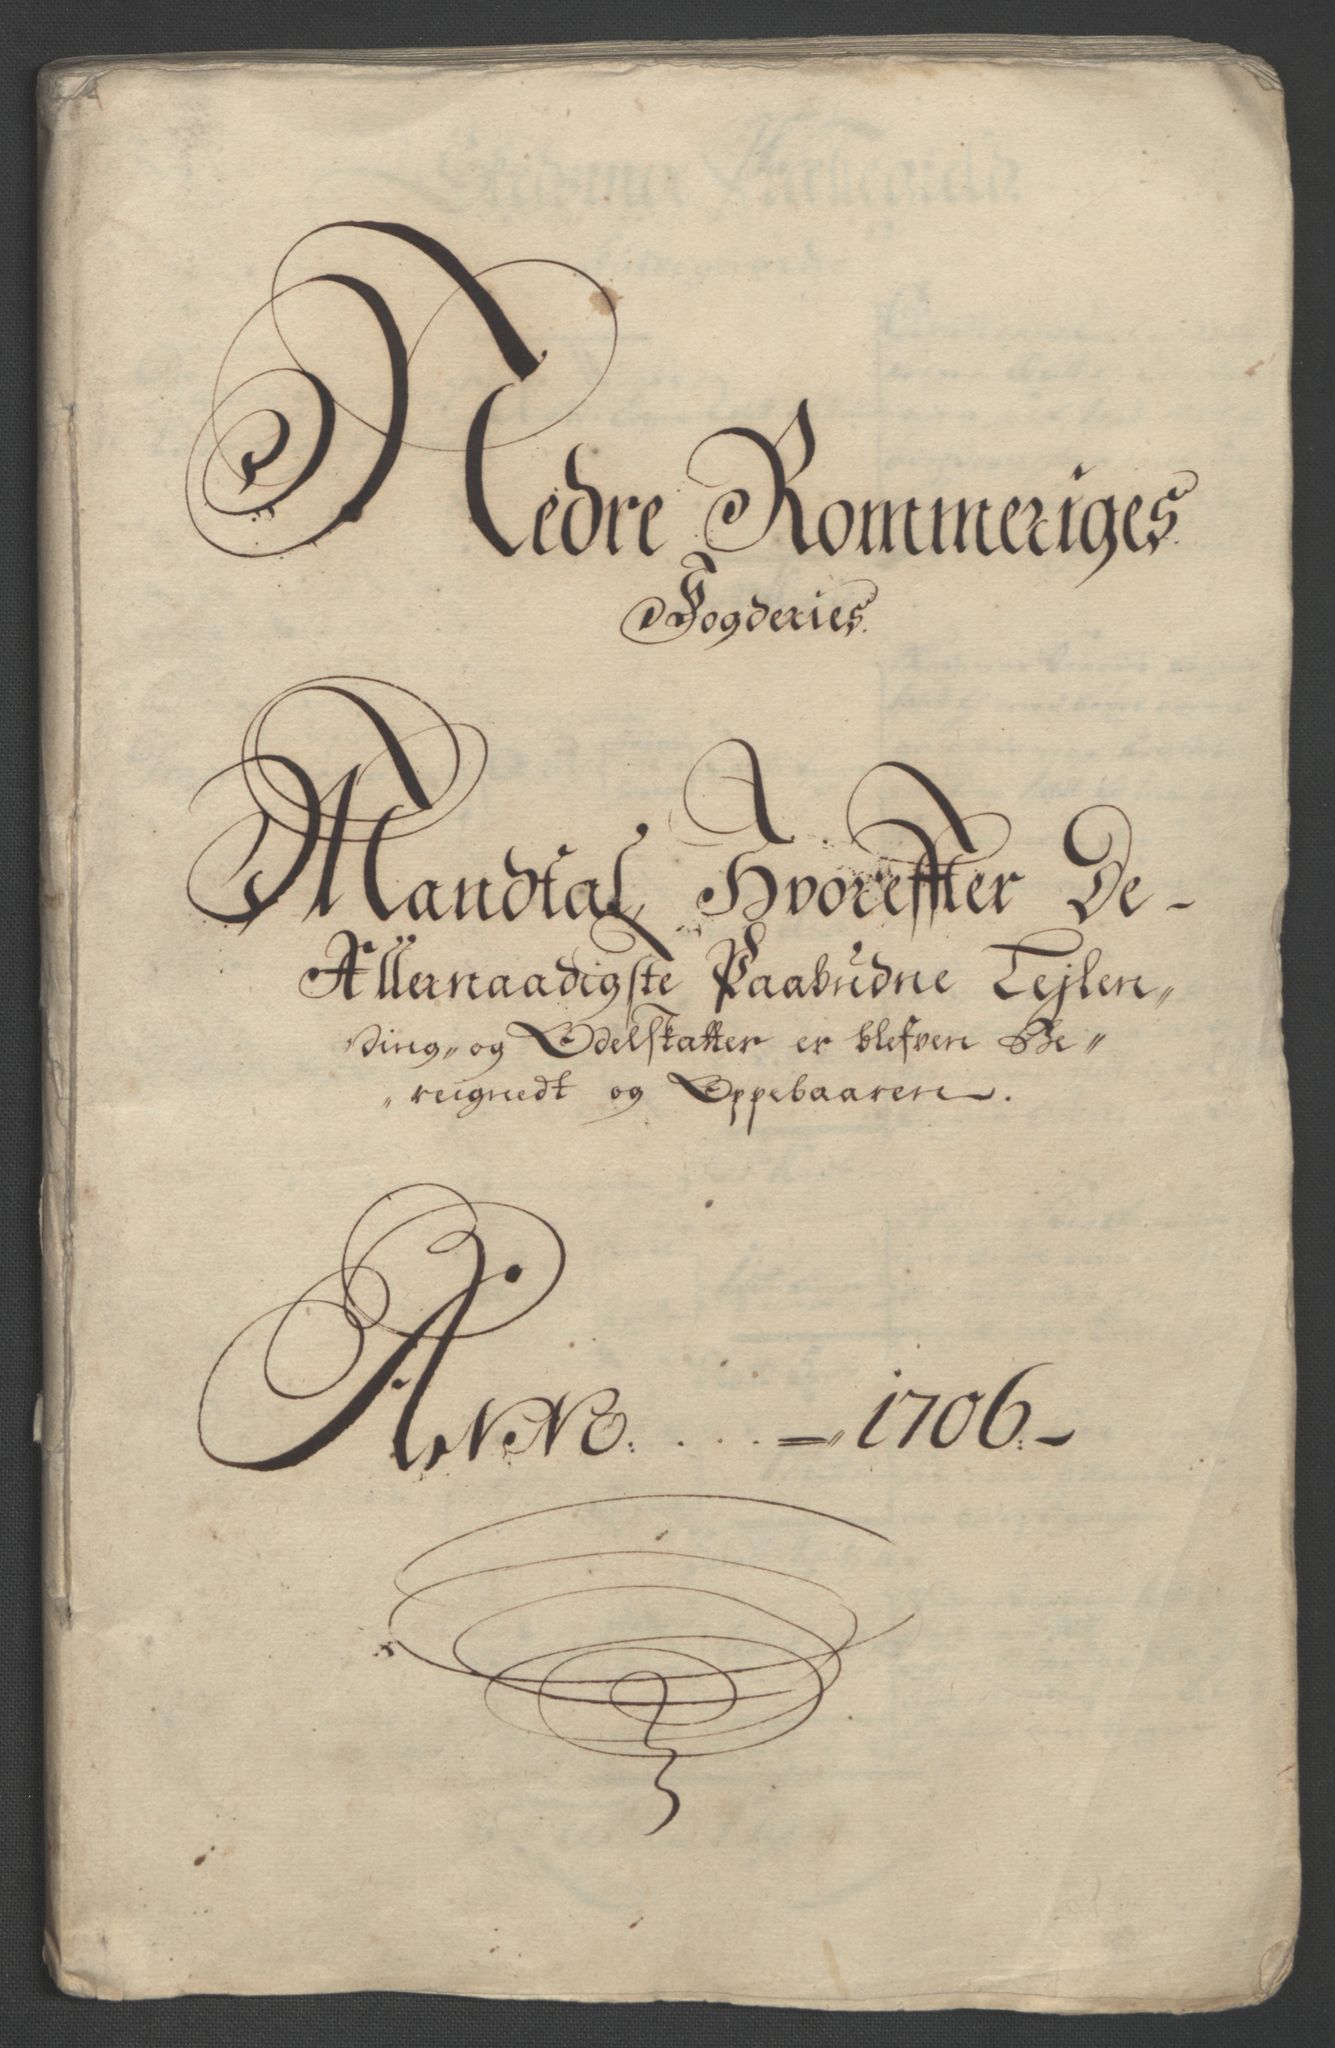 Nedre Rommeriges
Fogderies
Mandtal, Hvoreffter De-
Allernaadigste Paabudne Tejlen„
ding„ og Odelskatter er blefven Be„
„reignedt og Oppebaaren.
ANNO. . . . . =„ 1706.-